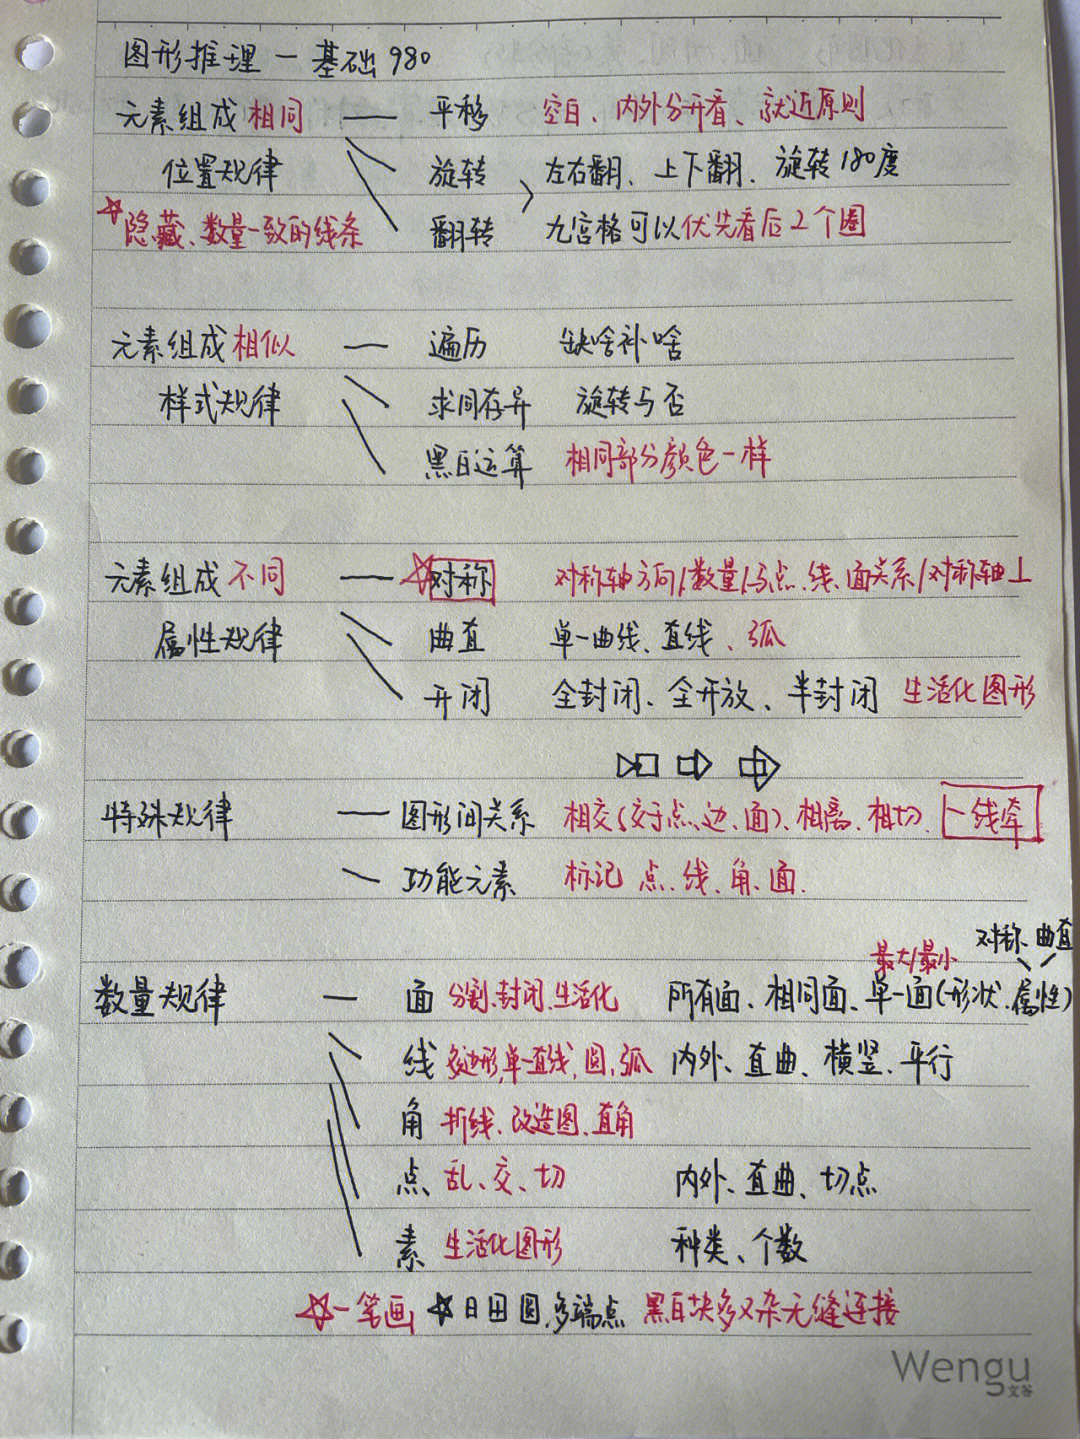 图形推理 — 基础980
元素组成相同 — 平移 空白、内外分开看、就近原则
位置规律 旋转 左右翻、上下翻、旋转180度
☆隐藏、数量一致的线条 翻转 九宫格可以优先看后2个图
元素组成相似 — 遍历 缺啥补啥
样式规律 求同存异 旋转与否
黑白运算 相同部分颜色一样
元素组成不同 — ☆对称 对称轴方向/数量/与点、线、面关系/对称轴⊥
属性规律 曲直 单一曲线、直线、弧
开闭 全封闭、全开放、半封闭 生活化图形
特殊规律 — 图形间关系 相交(交于点、边、面)、相离、相切、一线牵
功能元素 标记 点、线、角、面.
对称、曲直
最大/最小
数量规律 — 面 分割、封闭、生活化 所有面、相同面、单一面(形状、属性)
线 多边形,单一直线,圆,弧 内外、直曲、横竖、平行
角 折线、改造图、直角
点 乱、交、切 内外、直曲、切点
素 生活化图形 种类、个数
☆一笔画 ☆日田圆,多端点 黑白块多又杂无缝连接
Wengu
文谷